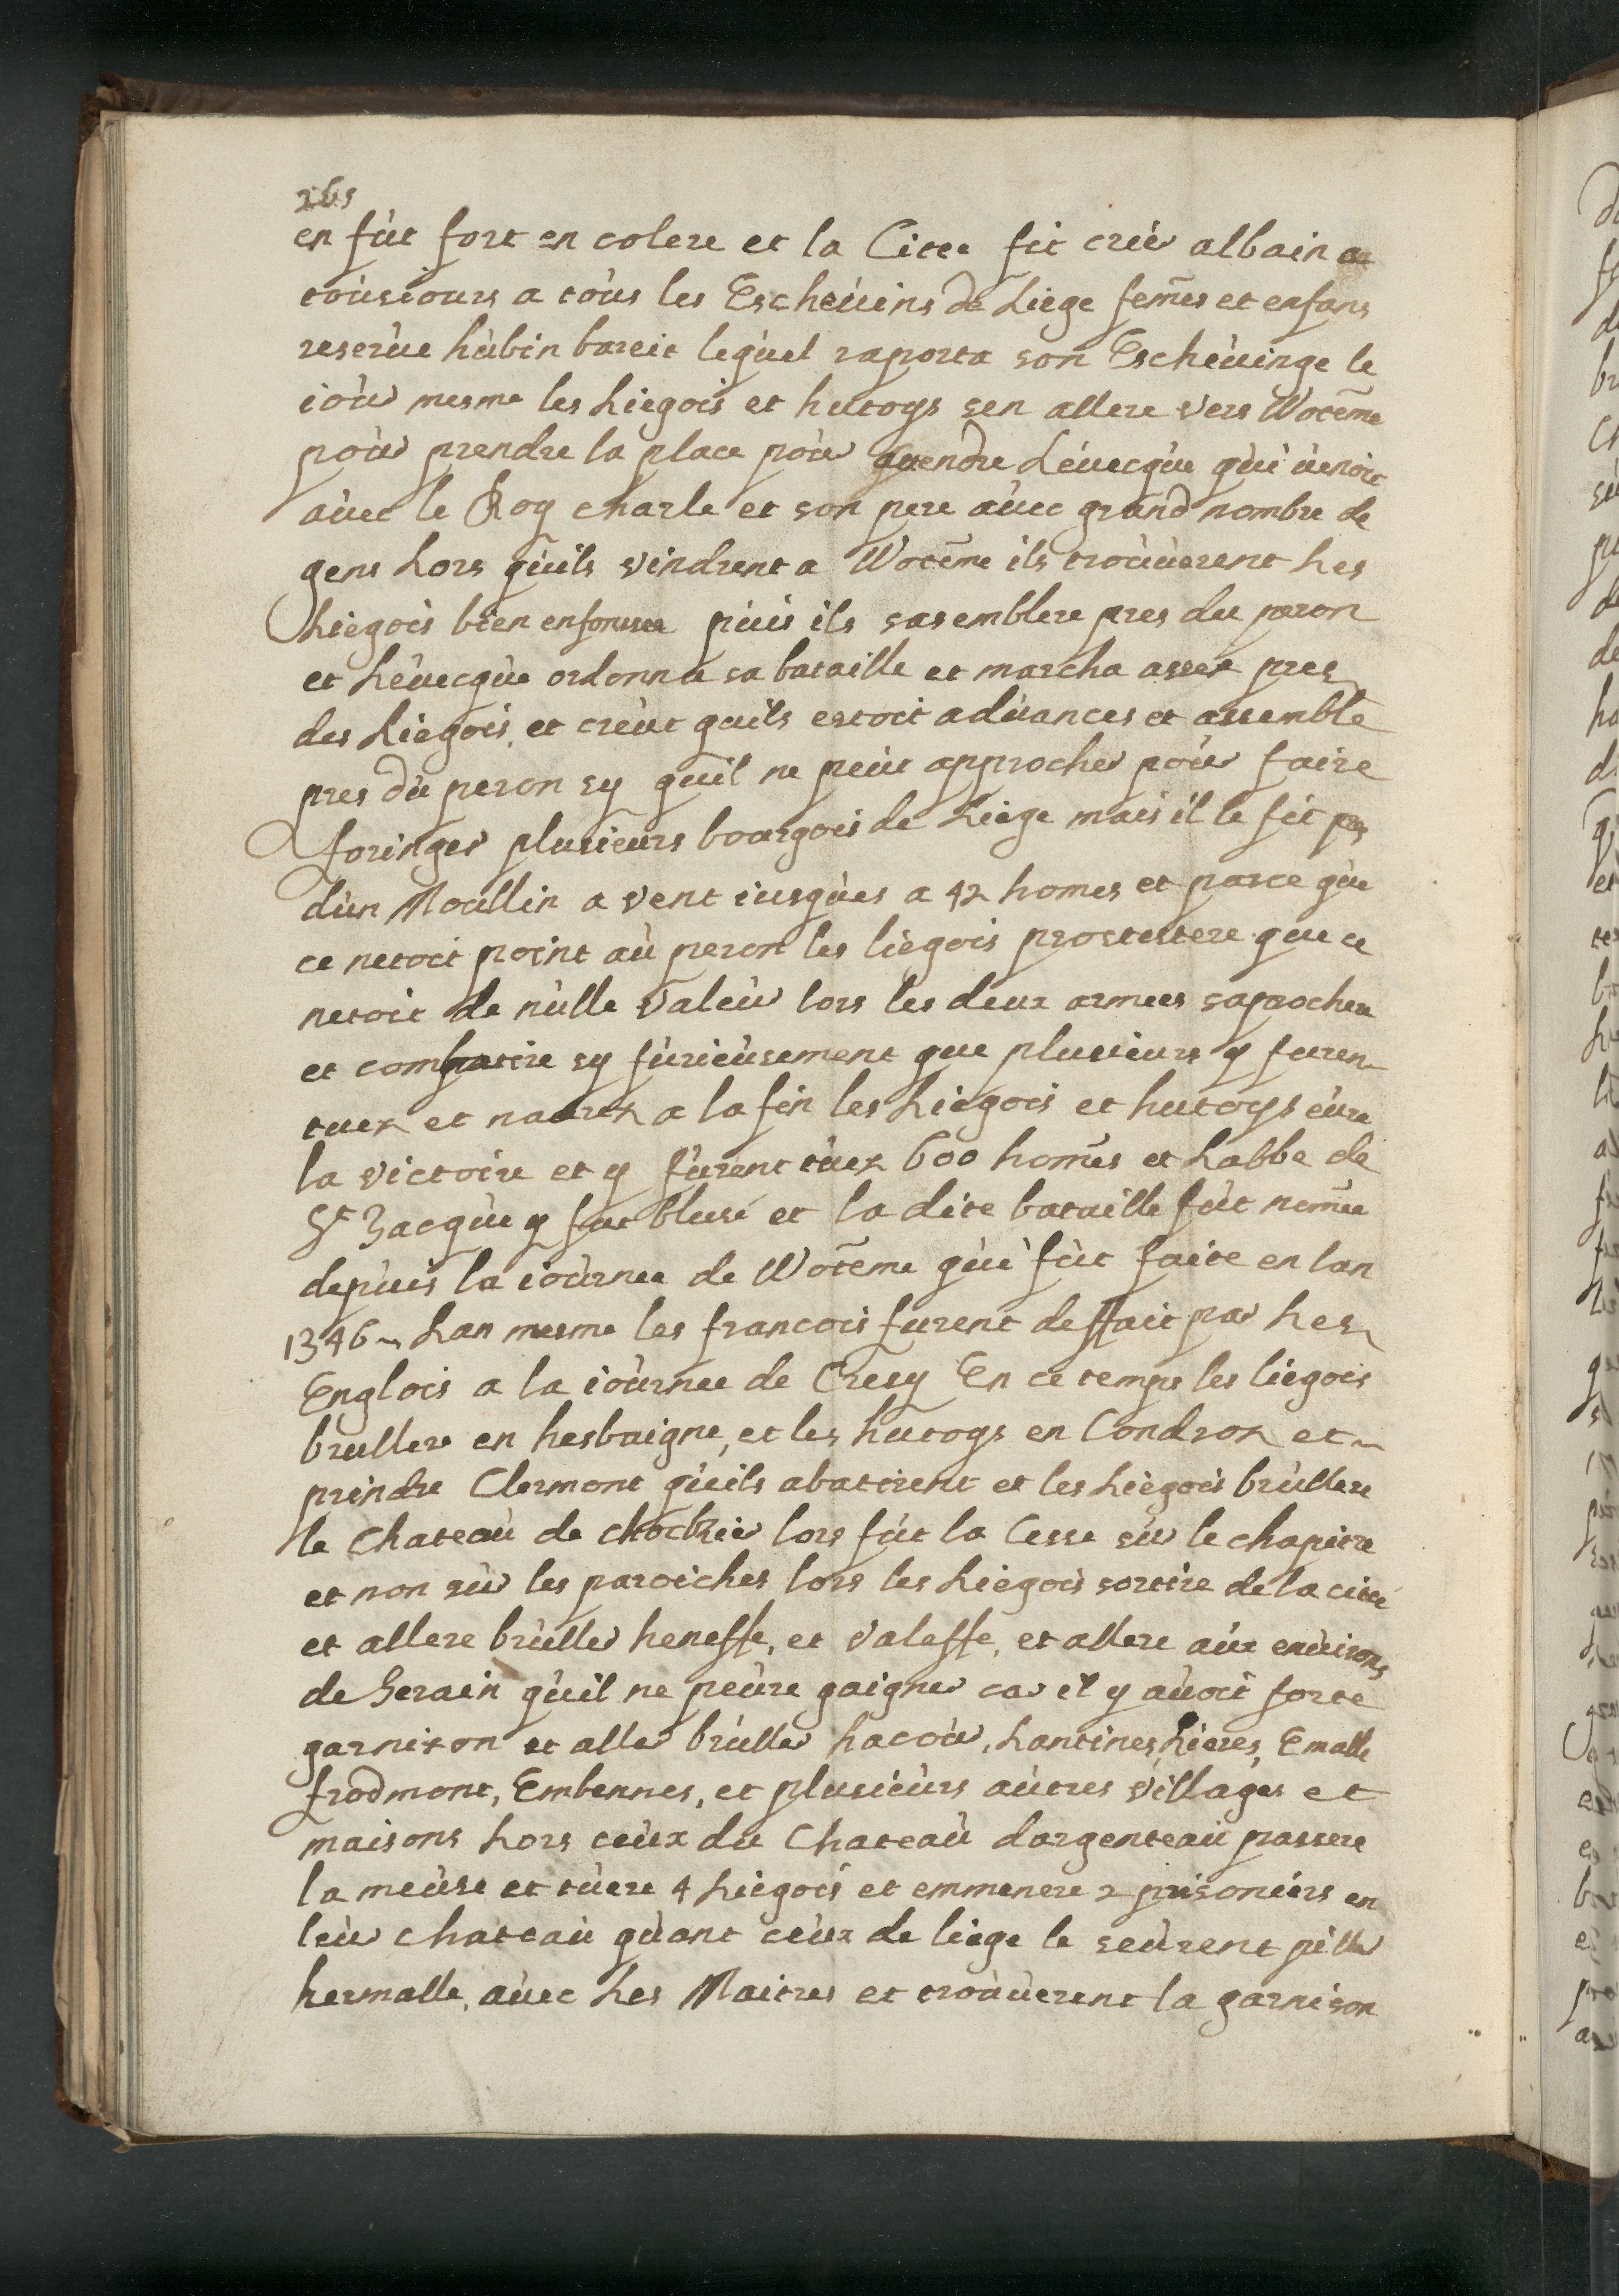 265
en fùt fort en colere et la Citee fit crier albain a
toùsiours a toùs les Escheùins de Liege fem̃es et enfans
reserùe hùbin bareit leqùel raporta son Escheùinge le
ioùr mesme les Liegois et hutoys sen allere vers Wotem̃e
poùr prendre la place poùr Léuecqùe qùi ùenoit
aùec le Roy charle et son pere aùec grand nombre de
gens Lors qùils vindrent a Wotem̃e ils troùùerent Les
Liegois bien pùis ils sasemblere pres du peron
et Léuecqùe ordonna sa bataille et marcha asses pres
des Liegois et creùt quils estoit adùances et assemblé
pres dù peron sy quil ne peùt approcher poùr faire
foringer plusieurs bourgois de Liege mais il le fit pres
dùn Moullin a vent iusqùes a 42 homes et parce qùe
ce netoit point aù peron les liegois protestere que ce
netoit de nùlle valeùr lors les deux armees saprochere
et combatire sy fùrieùsement que plusieurs y furen
tuez et naurez a la fin les Liegois et hutoys eùre
la victoire et y fùrent tùez 600 hom̃es et Labbe de
St Jacqùe y fut blesé et la dite bataille fùt nom̃ee
depùis la ioùrnee de Wotem̃e qùi fùt faite en lan
1346 Lan mesme les francois furent deffait par Les
Englois a la ioùrnee de Cresy En ce temps les liegois
brullere en hesbaigne, et les hutoys en Condroz et
prindre Clermont qùils abattirent et les Liegois brùllere
le Chateaù de chockier lors fùt la Cesse sùr le chapitre
et non sùr les paroiches lors les Liegois sortire de la cité
et allere brùller heneffe, et valeffe, et allere aùx enùirons
de Serain qùil ne peùre gaigner car il y aùoit forte
garnison et aller brùller hacoùr, Lantines, Lieres, Emalle
frodmont, Embennes, et plusieùrs aùtres villages et
maisons Lors ceùx du Chateaù dargenteaù passere
la meùse et tùere 4 Liegois et emmenere 2 prisoniers en
leùr chateaù qùant ceùx de liege le seùrent piller
hermalle, aùec Les Maitres et troùùerent la garnison